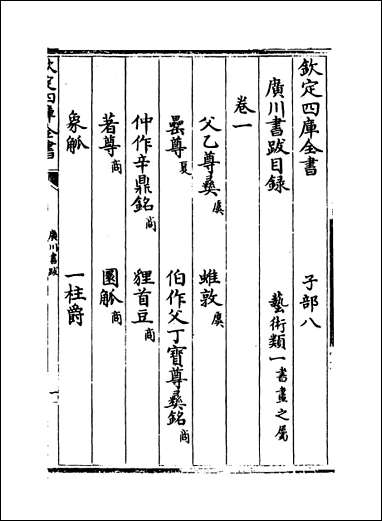 欽定四庫全書 子部八
廣川書跋目録 藝術類一書畫之屬
卷一
父乙尊彝虞 蜼敦虞
罍尊夏 伯作父丁寶尊彝銘商
仲作辛鼎銘商 貍首豆商
著尊商 圜觚商
象觚 一柱爵
欽定四庫全書 廣川書跋 一